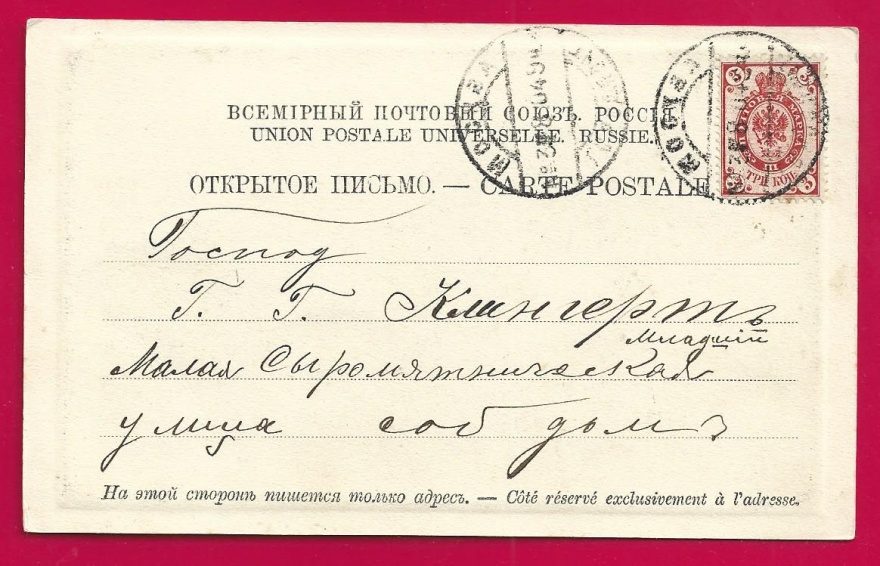 ВСЕМІРНЫЙ ПОЧТОВЫЙ СОЮЗЪ. РОССІЯ
UNION POSTALE UNIVERSELLE. RUSSIE.
ОТКРЫТОЕ ПИСЬМО. — CARTE POSTALE
МОСКВА
МОСКВА
3 3
ПОЧТОВАЯ МАРКА
ТРИ КОП.
3 3
Господ
Г. Г. Клингертъ
Младшій
Малая Сыромятническая
улица соб домъ
На этой сторонѣ пишется только адресъ. — Côté réservé exclusivement à l'adresse.